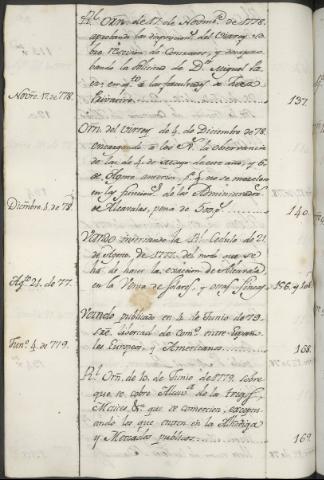 Rl. Orn. de 17. de Novmbe. de 1778.
aprobando las disposicions. del Virrey so-
bre resicion de Consumos, y desapro-
bando la solicitud de Dn. Miguel
en qto. a las facultades de
Privativo
Novre. 17. de 778.
137.
Orn. del Virrey de 4. de Diciembre de 78.
encargando a los la observancia
de las de 4. de Mayo de este año, y 6.
de Agosto anterior pa. q. no se mezclen
en las funcions. de los Administradores
de Alcavalas, pena de 500 ps.
Diciembre. 4. de 78.
140.
Vando insertando la Rl. Cedula de 21.
de Agosto de 1777. del modo que se
ha de hacer la exaccion de Alcavala
en la Venta de Solares, y otras fincas
Agto. 21. de 77.
Vando publicado en 4. de Junio de 79.
sre. libertad de como. entre Españo-
les Europeos, y Americanos
Jun. 4. de 779.
168.
Rl. Orn. de 10. de Junio de 1779. sobre
que se cobre Alcava. de
Maices, &a. que se comercien, excepto
los que entren en la Alhondiga
y Mercados publicos.
169.